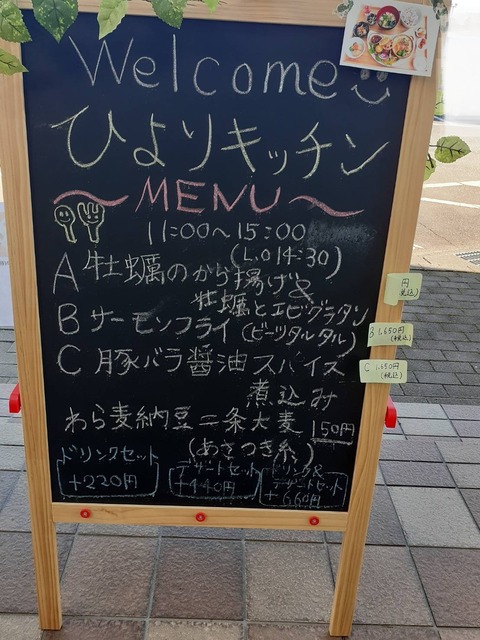 Welcome
ひよりキッチン
~MENU~
11:00~15:00
(L.O 14:30)
A 牡蠣のから揚げ&
牡蠣とエビグラタン
B サーモンフライ (ビーツタルタル)
C 豚バラ醤油スパイス
煮込み
わら麦納豆二条大麦 150円
(あさつき糸)
ドリンクセット
+220円
デザートセット
+440円
ドリンク&
デザートセット
+660円
円
税込)
B 1,650円
(税込)
C 1,650円
(税込)